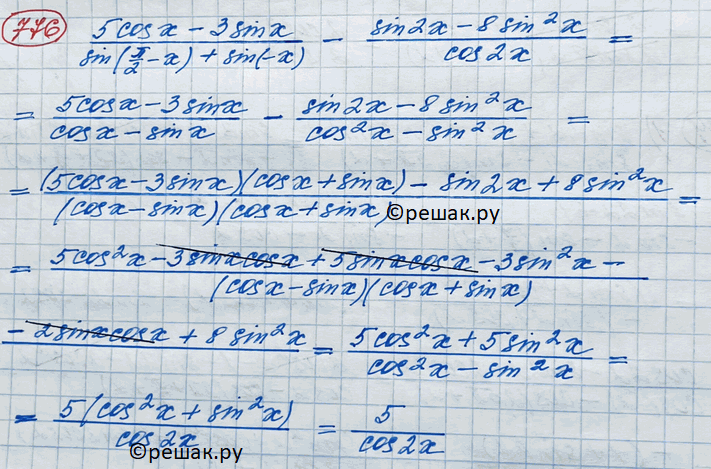 776 (5cosx - 3sinx)/(sin(π/2 - x) + sin(-x)) - (sin2x - 8sin²x)/(cos2x) =
= (5cosx - 3sinx)/(cosx - sinx) - (sin2x - 8sin²x)/(cos²x - sin²x) =
= ((5cosx - 3sinx)(cosx + sinx) - sin2x + 8sin²x)/((cosx - sinx)(cosx + sinx)) =
©решак.ру
= (5cos²x - 3sinxcosx + 5sinxcosx - 3sin²x -)/((cosx - sinx)(cosx + sinx))
- 2sinxcosx + 8sin²x = (5cos²x + 5sin²x)/(cos²x - sin²x) =
= (5(cos²x + sin²x))/(cos2x) = 5/(cos2x)
©решак.ру